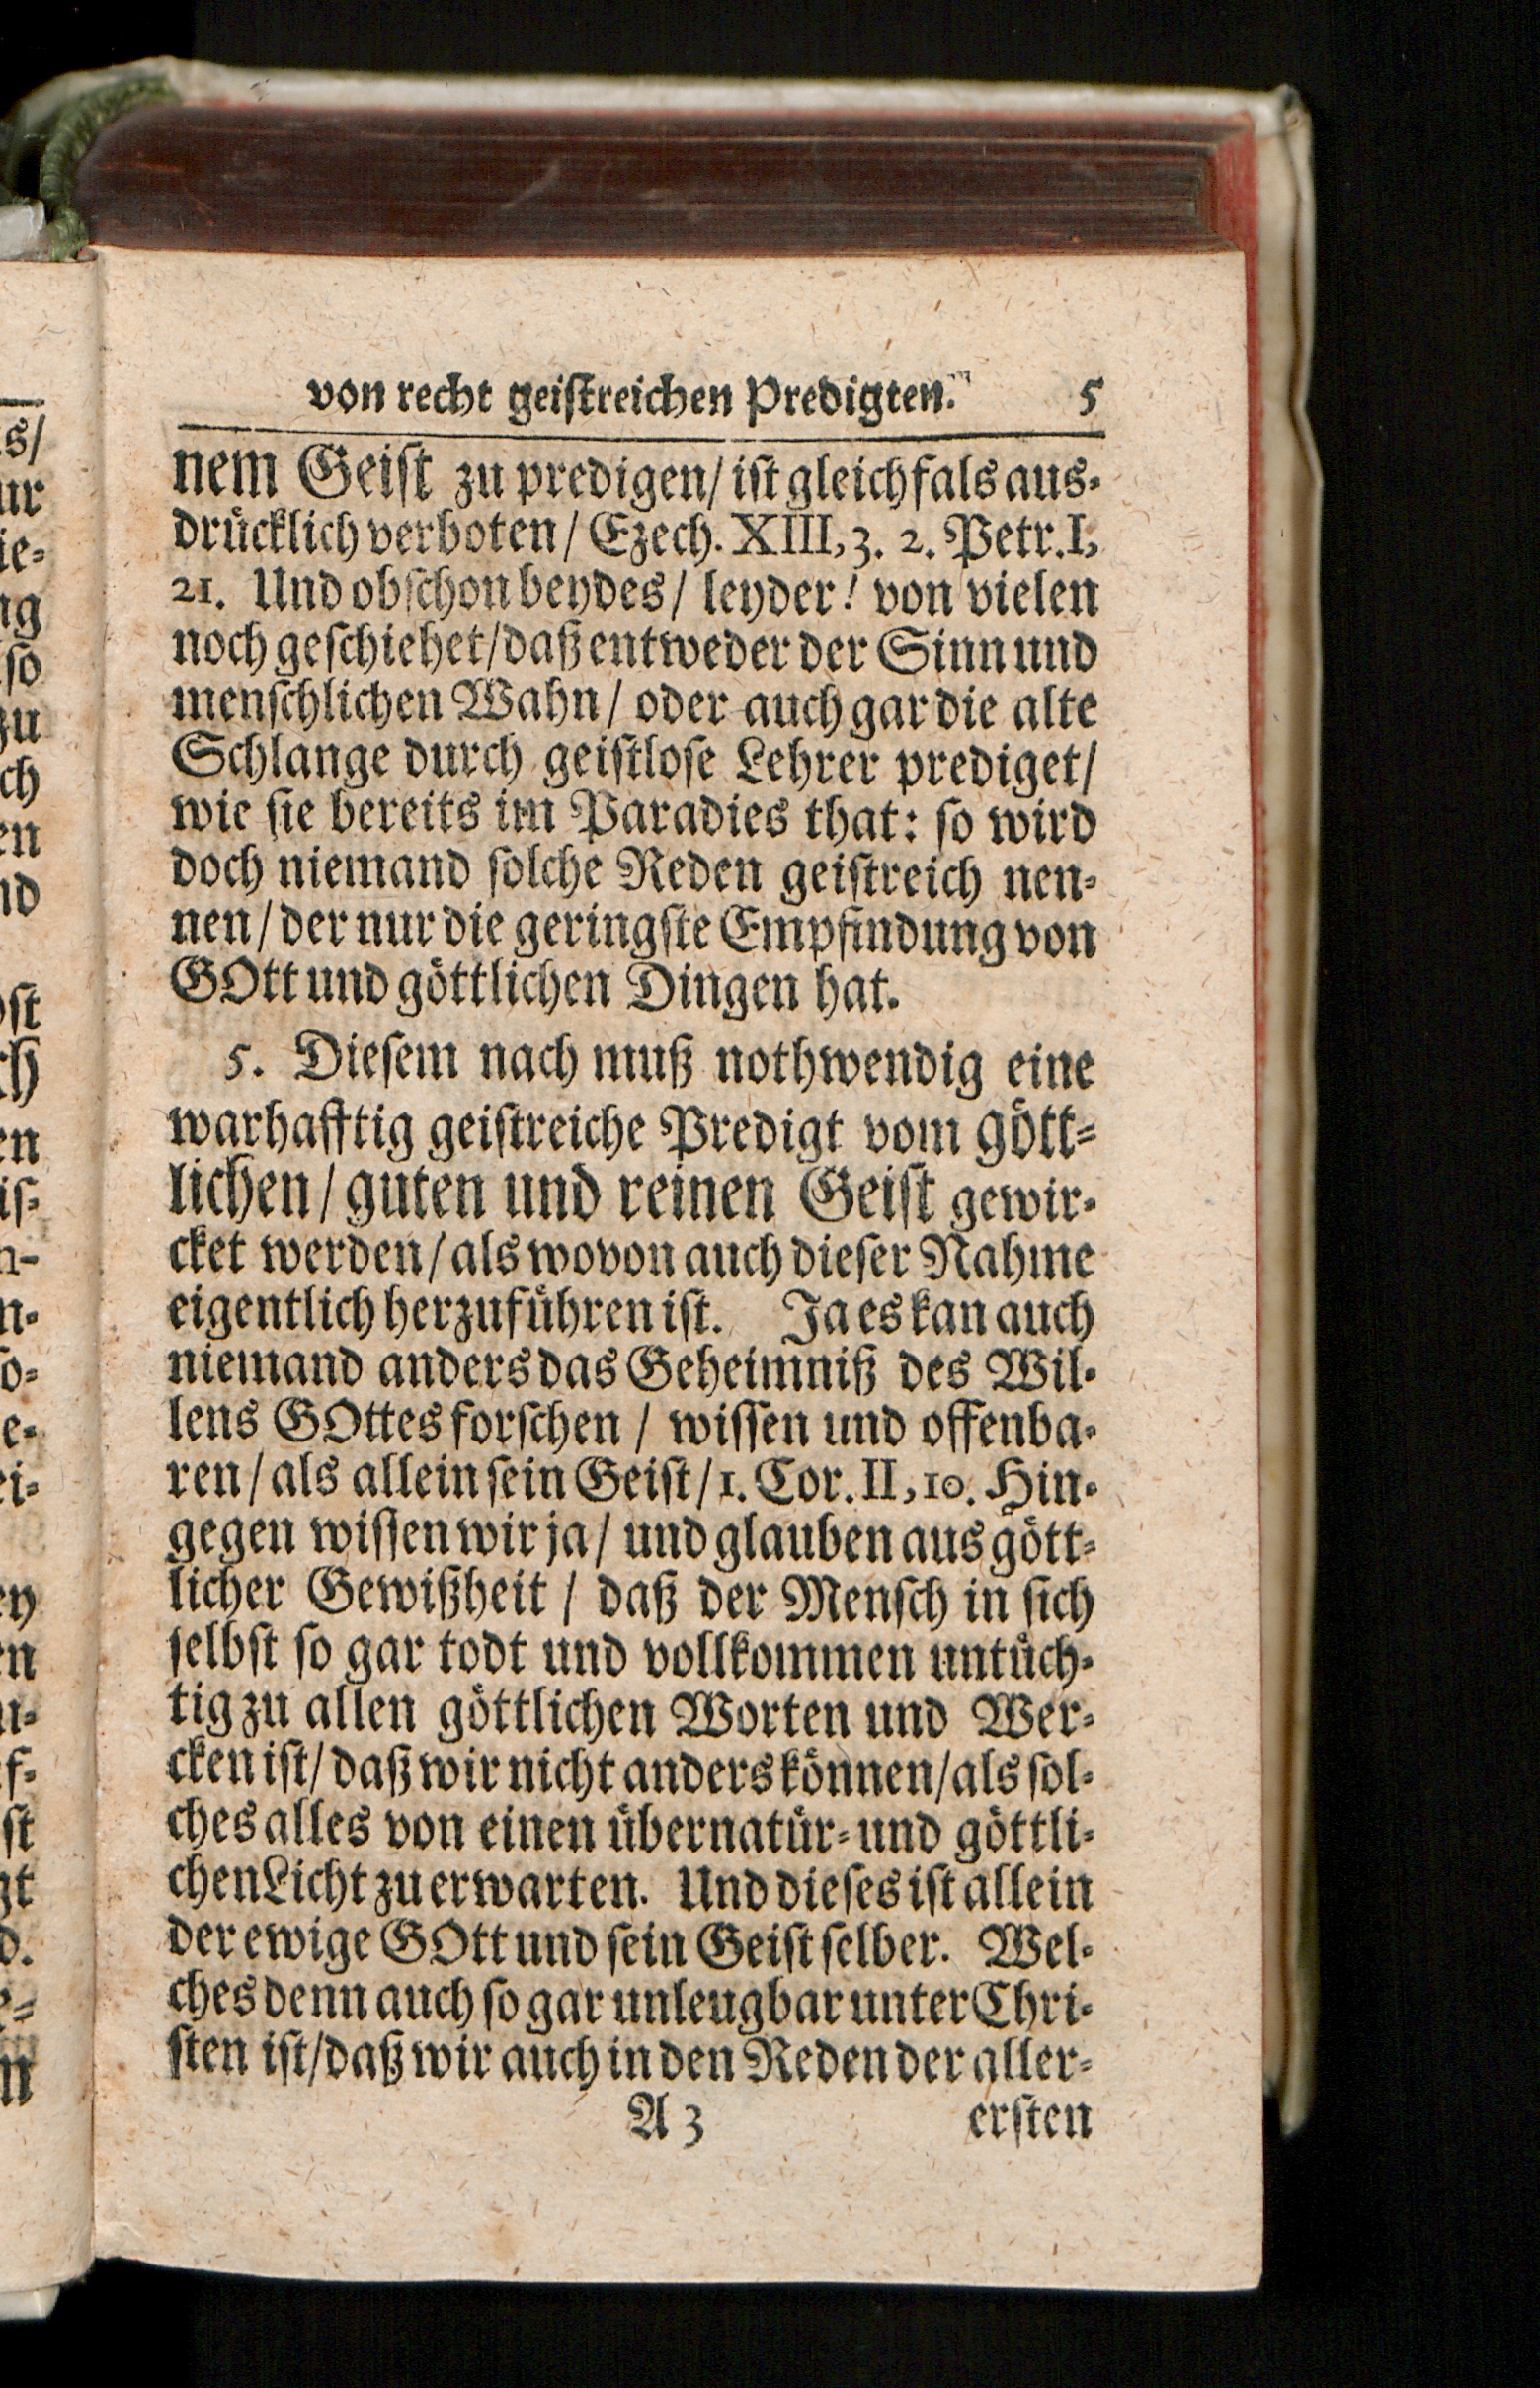 von recht geistreichen Predigten. 5
nem Geist zu predigen/ ist gleichfals aus-
drücklich verboten/ Ezech. XIII, 3. 2. Petr. I,
21. Und obschon beydes/ leyder! von vielen
noch geschiehet/ daß entweder der Sinn und
menschlichen Wahn/ oder auch gar die alte
Schlange durch geistlose Lehrer prediget/
wie sie bereits im Paradies that: so wird
doch niemand solche Reden geistreich nen-
nen/ der nur die geringste Empfindung von
GOtt und göttlichen Dingen hat.
5. Diesem nach muß nothwendig eine
warhafftig geistreiche Predigt vom gött-
lichen/ guten und reinen Geist gewir-
cket werden/ als wovon auch dieser Nahme
eigentlich herzuführen ist. Ja es kan auch
niemand anders das Geheimniß des Wil-
lens GOttes forschen / wissen und offenba-
ren/ als allein sein Geist/ 1. Cor. II, 10. Hin-
gegen wissen wir ja/ und glauben aus gött-
licher Gewißheit / daß der Mensch in sich
selbst so gar todt und vollkommen untüch-
tig zu allen göttlichen Worten und Wer-
cken ist/ daß wir nicht anders können/ als sol-
ches alles von einen übernatür- und göttli-
chen Licht zu erwarten. Und dieses ist allein
der ewige GOtt und sein Geist selber. Wel-
ches denn auch so gar unleugbar unter Chri-
sten ist/ daß wir auch in den Reden der aller-
A 3 ersten